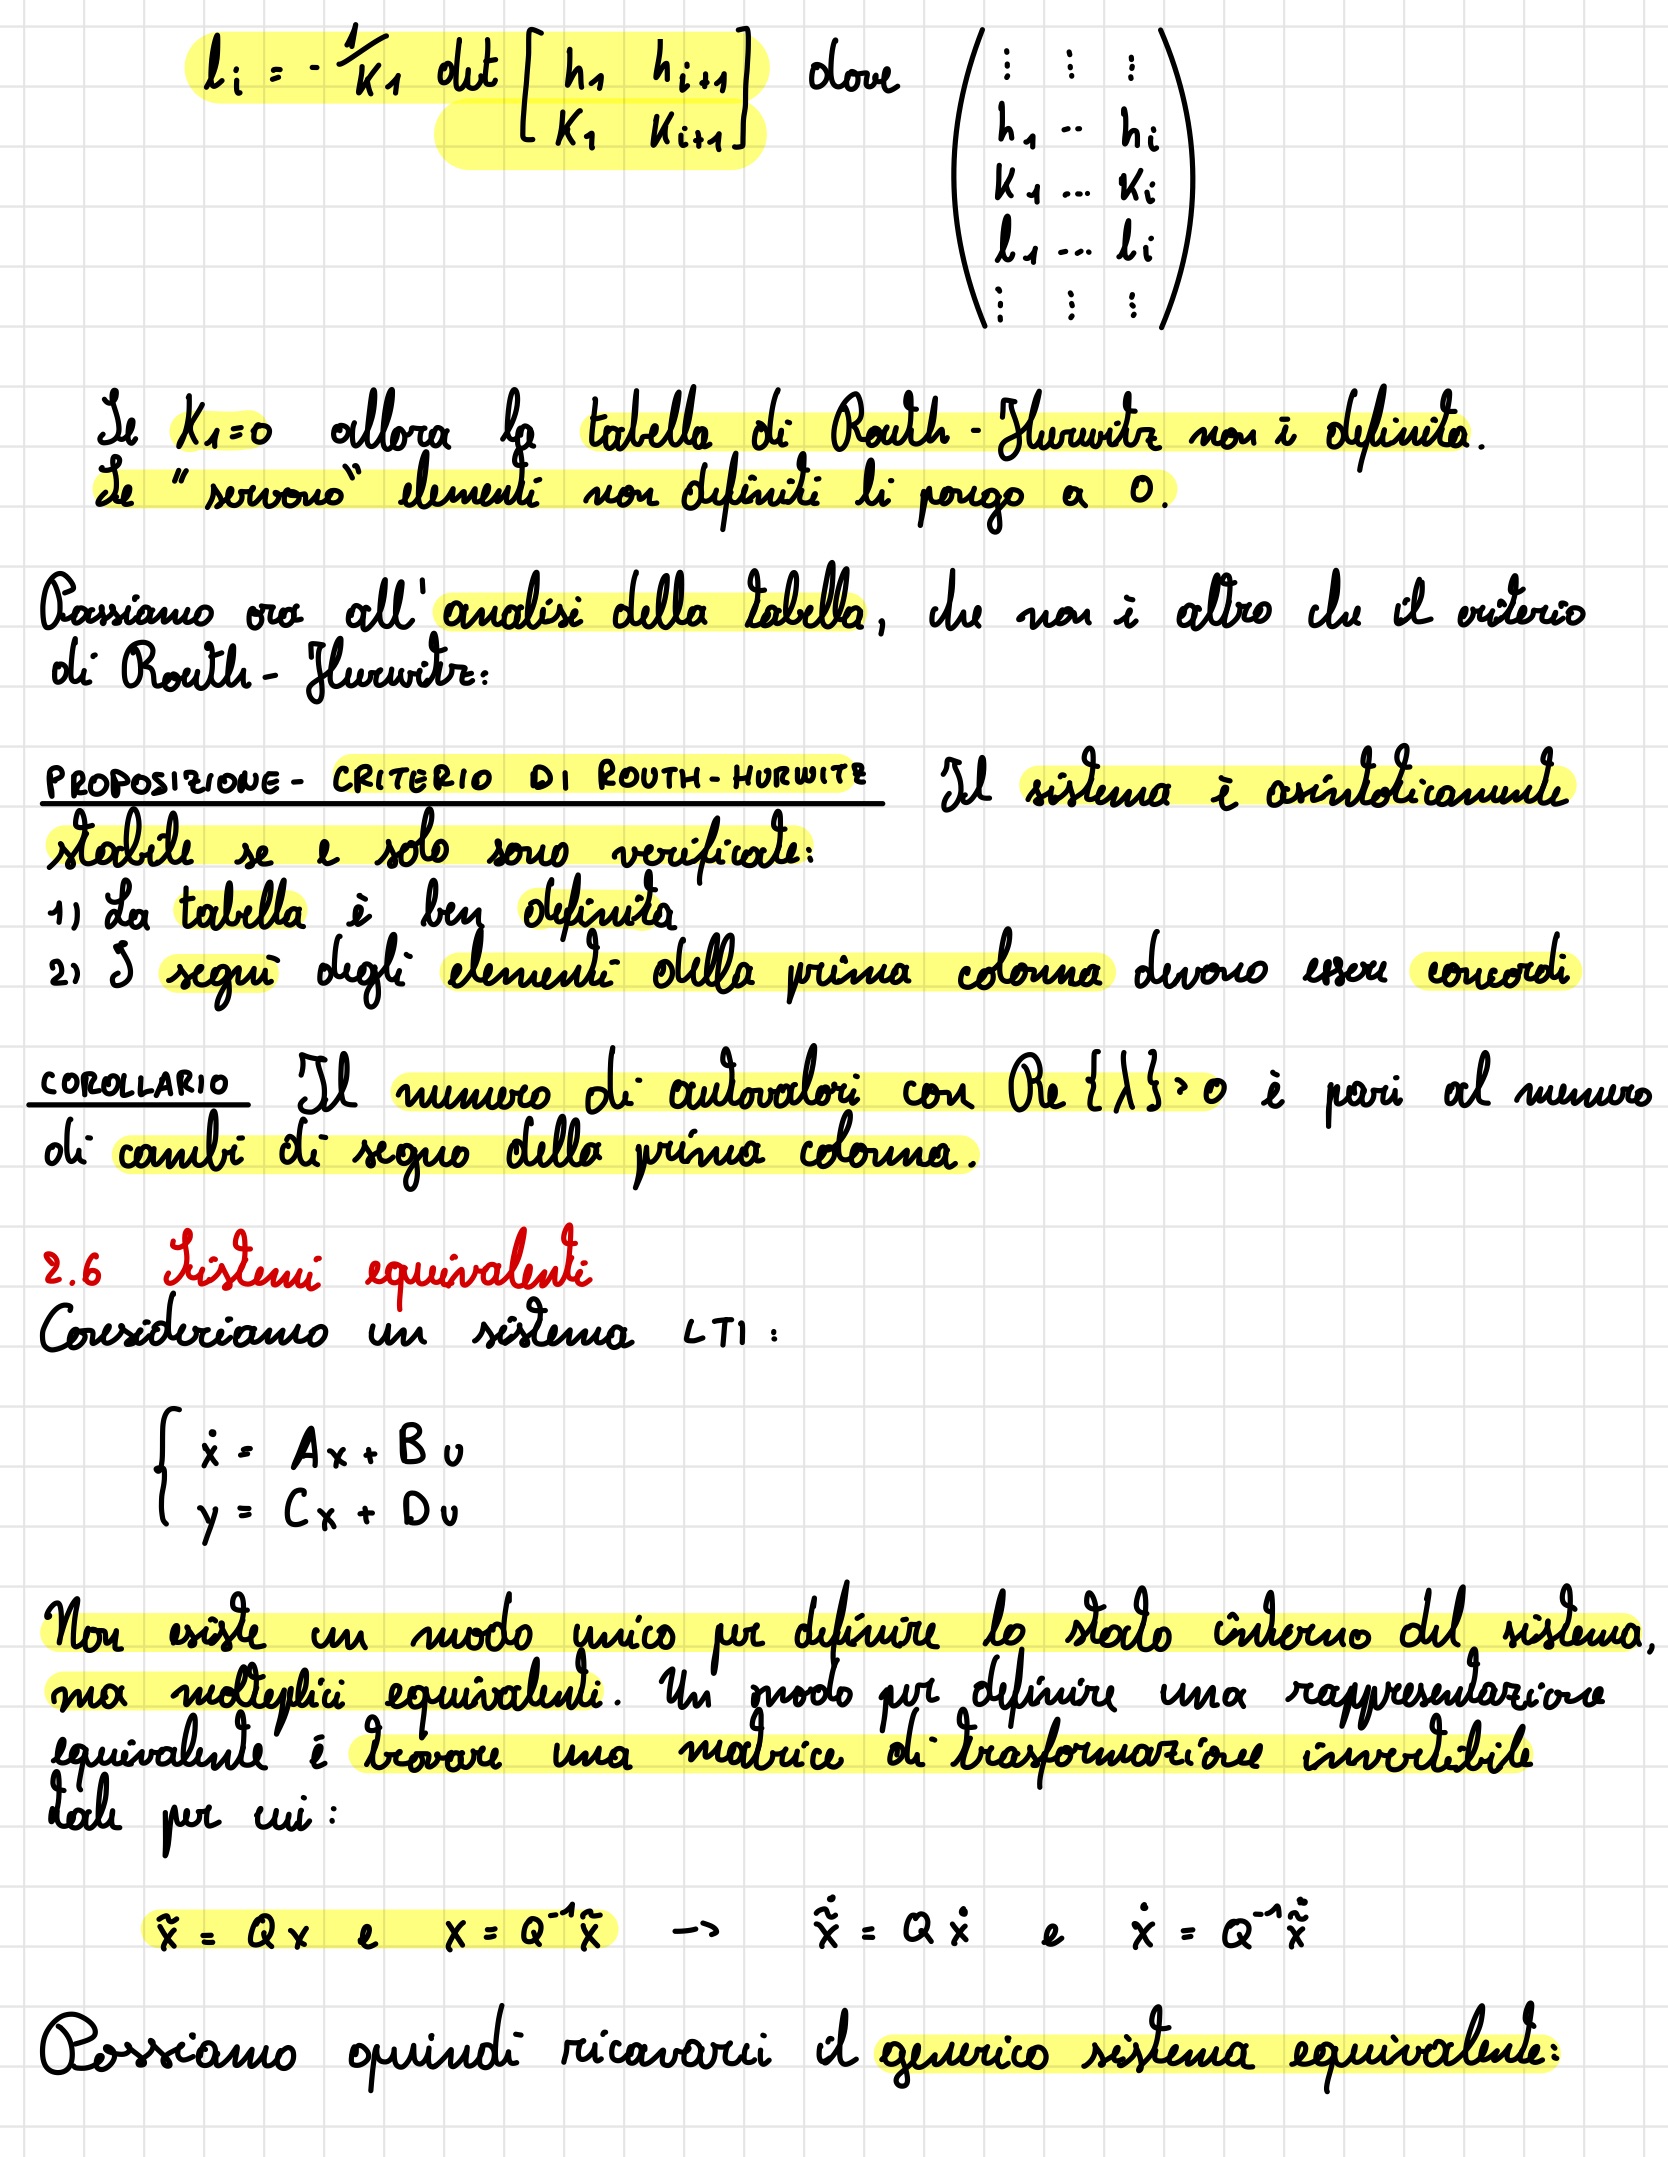 l_i = - 1/K_1 det [ h_1 h_{i+1} ; K_1 K_{i+1} ] dove
⋮ ⋮ ⋮
h_1 ... h_i
K_1 ... K_i
l_1 ... l_i
⋮ ⋮ ⋮
Se K_1=0 allora la tabella di Routh-Hurwitz non è definita.
Se "servono" elementi non definiti li pongo a 0.
Passiamo ora all'analisi della tabella, che non è altro che il criterio
di Routh-Hurwitz:
PROPOSIZIONE - CRITERIO DI ROUTH-HURWITZ Il sistema è asintoticamente
stabile se e solo sono verificate:
1) La tabella è ben definita
2) I segni degli elementi della prima colonna devono essere concordi
COROLLARIO Il numero di autovalori con Re{λ}>0 è pari al numero
di cambi di segno della prima colonna.
2.6 Sistemi equivalenti
Consideriamo un sistema LTI:
ẋ = Ax + Bu
y = Cx + Du
Non esiste un modo unico per definire lo stato interno del sistema,
ma molteplici equivalenti. Un modo per definire una rappresentazione
equivalente è trovare una matrice di trasformazione invertibile
tale per cui:
x̃ = Qx e x = Q⁻¹x̃ -> x̃̇ = Qẋ e ẋ = Q⁻¹x̃̇
Possiamo quindi ricavarci il generico sistema equivalente: